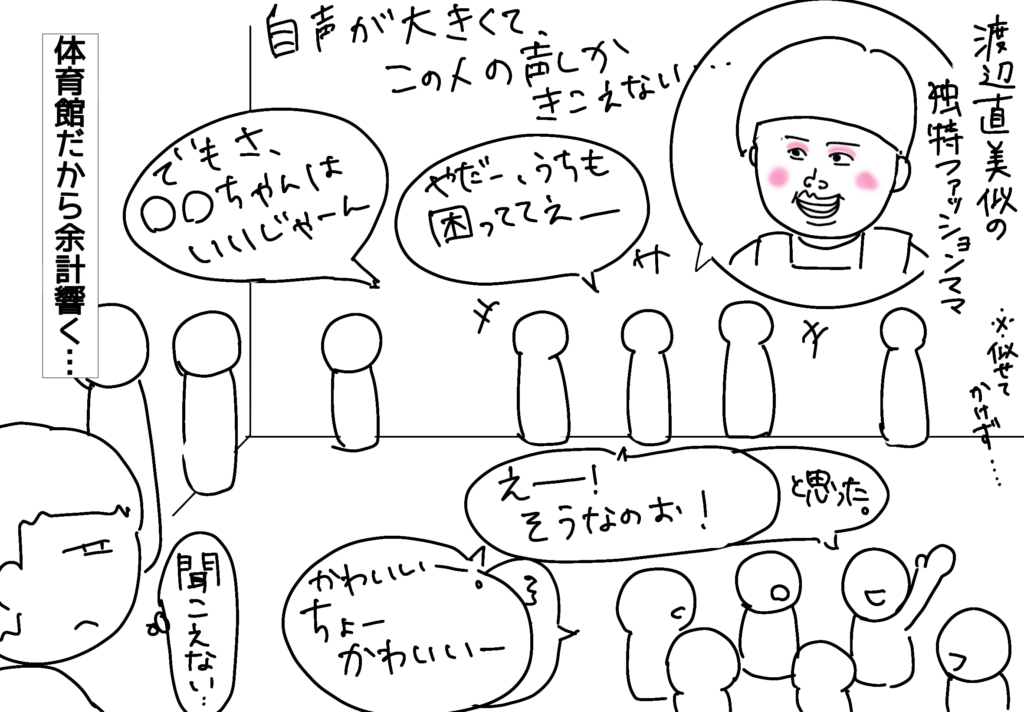 渡辺直美似の
独特ファッションママ
※似せて
かけず…
自声が大きくて、
この人の声しか
きこえない…
やだー、うちも
困っててえー
でもさ、
〇〇ちゃんは
いいじゃーん
体育館だから余計響く…
えー！
そうなのお！
と思った。
かわいいー
ちょー
かわいいー
聞こえない…